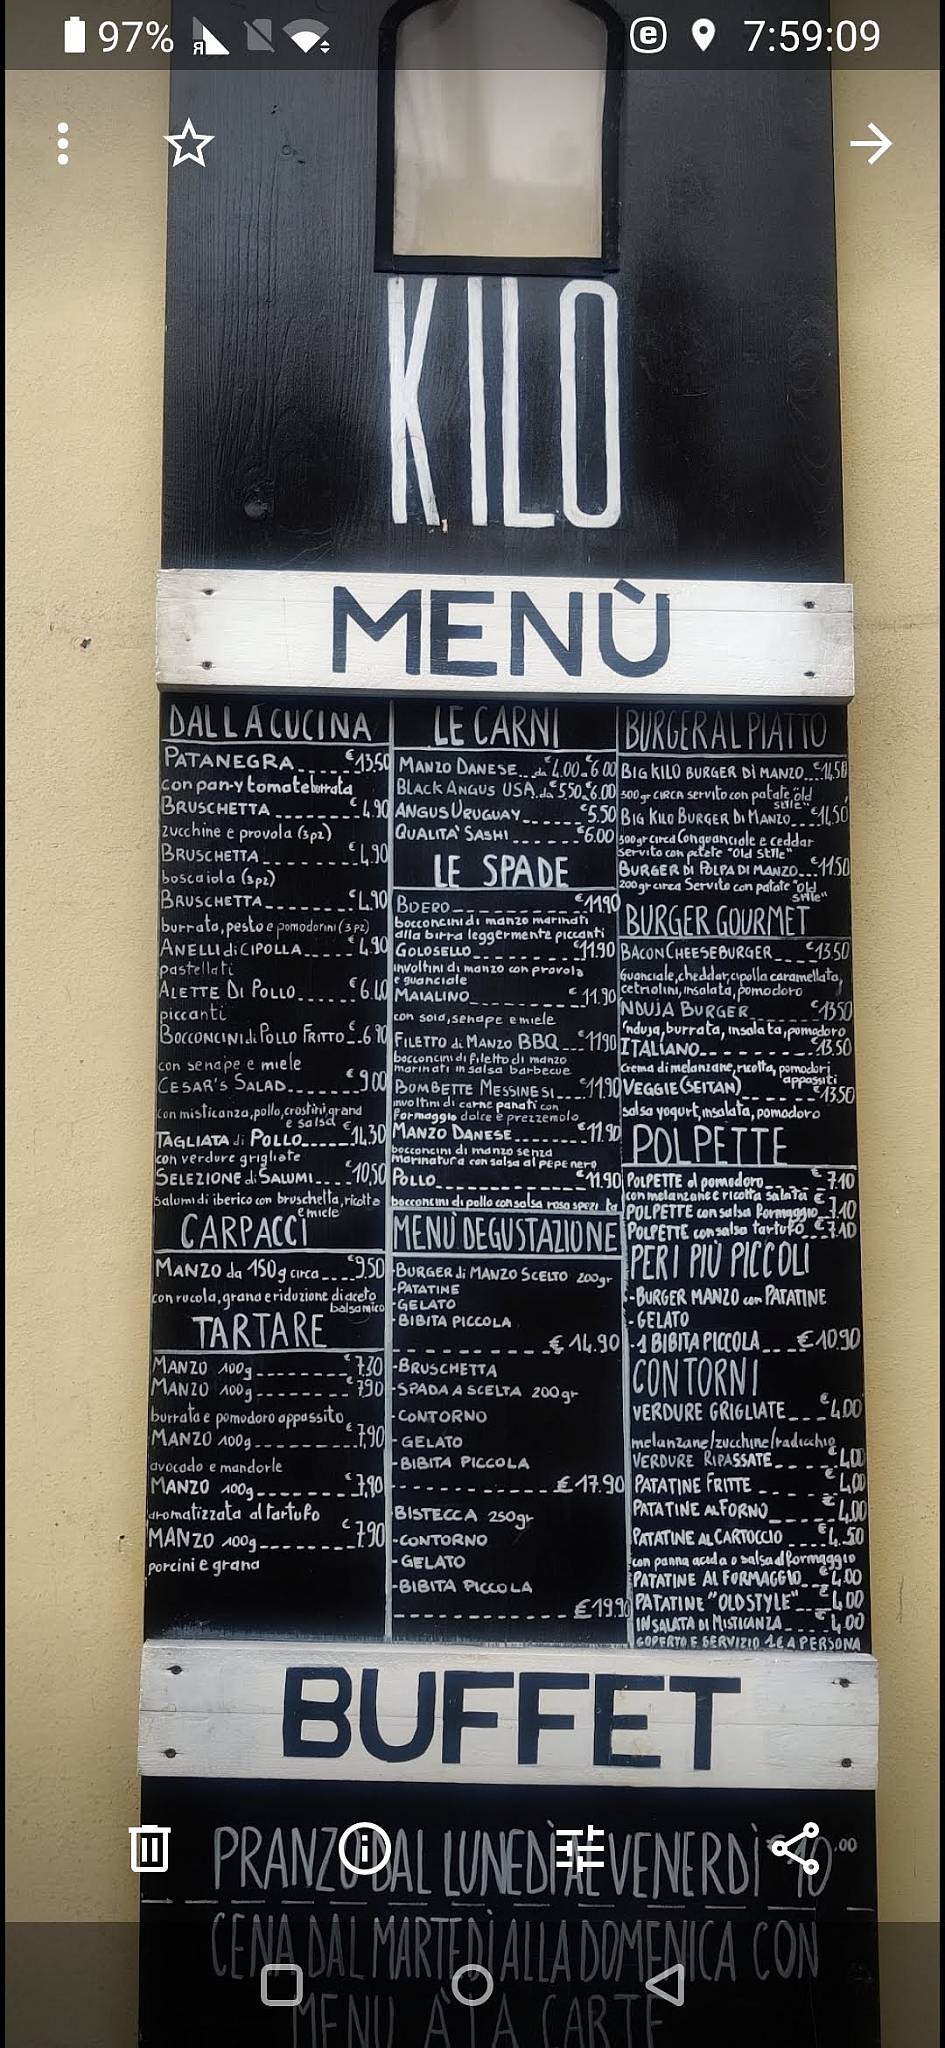 97%
7:59:09
KILO
MENÙ
DALLA CUCINA
PATANEGRA €13.50
con pan y tomate burrata
BRUSCHETTA €4,90
zucchine e provola (3pz)
BRUSCHETTA €4,90
boscaiola (3pz)
BRUSCHETTA €4,90
burrata, pesto e pomodorini (3pz)
ANELLI di CIPOLLA €4.90
pastellati
ALETTE DI POLLO €6.40
piccanti
BOCCONCINI di POLLO FRITTO €6,90
con senape e miele
CESAR'S SALAD €9.00
con misticanza, pollo, crostini, grana
e salsa
TAGLIATA di POLLO €14,30
con verdure grigliate
SELEZIONE di SALUMI €10,50
salumi di iberico con bruschetta, ricotta
e miele
CARPACCI
MANZO da 150g circa €9.50
con rucola, grana e riduzione di aceto
balsamico
TARTARE
MANZO 100g €7.30
MANZO 100g €7.90
burrata e pomodoro appassito
MANZO 100g €7,90
avocado e mandorle
MANZO 100g €7,90
aromatizzata al tartufo
MANZO 100g €7.90
porcini e grana
LE CARNI
MANZO DANESE da €4.00 a 6.00
BLACK ANGUS USA da €5.50 €6.00
ANGUS URUGUAY €5.50
QUALITA' SASHI €6.00
LE SPADE
BOERO €11.90
bocconcini di manzo marinati
alla birra leggermente piccanti
GOLOSELLO €11.90
involtini di manzo con provola
e guanciale
MAIALINO €11.90
con soia, senape e miele
FILETTO di MANZO BBQ €11.90
bocconcini di filetto di manzo
marinati in salsa barbecue
BOMBETTE MESSINESI €11.90
involtini di carne panati con
formaggio dolce e prezzemolo
MANZO DANESE €11.90
bocconcini di manzo senza
marinatura con salsa al pepe nero
POLLO €11.90
bocconcini di pollo con salsa rosa
MENÙ DEGUSTAZIONE
-BURGER di MANZO SCELTO 200gr
-PATATINE
-GELATO
-BIBITA PICCOLA
€14.90
-BRUSCHETTA
-SPADA A SCELTA 200gr
-CONTORNO
-GELATO
-BIBITA PICCOLA
€17.90
-BISTECCA 250gr
-CONTORNO
-GELATO
-BIBITA PICCOLA
€19.90
BURGER AL PIATTO
BIG KILO BURGER DI MANZO €14,50
300gr CIRCA servito con patate "old
stile"
BIG KILO BURGER DI MANZO €14,50
300gr circa Con guanciale e ceddar
servito con petete "Old Stile"
BURGER DI POLPA DI MANZO €11.50
200gr circa Servito con patate "old
stile"
BURGER GOURMET
BACON CHEESEBURGER €13.50
Guanciale, cheddar, cipolla caramellata,
cetriolini, insalata, pomodoro
NDUJA BURGER €13.50
'nduja, burrata, insalata, pomodoro
ITALIANO €13.50
Crema di melanzane, ricotta, pomodori
appassiti
VEGGIE (SEITAN) €13.50
salsa yogurt, insalata, pomodoro
POLPETTE
POLPETTE al pomodoro €7.10
con melanzane e ricotta salata €
POLPETTE con salsa formaggio 7.10
POLPETTE con salsa tartufo €7.10
PER I PIÙ PICCOLI
-BURGER MANZO con PATATINE
-GELATO
-1 BIBITA PICCOLA €10.90
CONTORNI
VERDURE GRIGLIATE €4.00
melanzane/zucchine/radicchio
VERDURE RIPASSATE €4.00
PATATINE FRITTE €4.00
PATATINE AL FORNO €4.00
PATATINE AL CARTOCCIO €4.50
con panna acida o salsa al formaggio
PATATINE AL FORMAGGIO €4.00
PATATINE "OLD STYLE" €4.00
INSALATA DI MISTICANZA €4.00
COPERTO E SERVIZIO 1€ A PERSONA
BUFFET
PRANZO DAL LUNEDÌ AL VENERDÌ €10.00
CENA DAL MARTEDÌ ALLA DOMENICA CON
MENU À LA CARTE